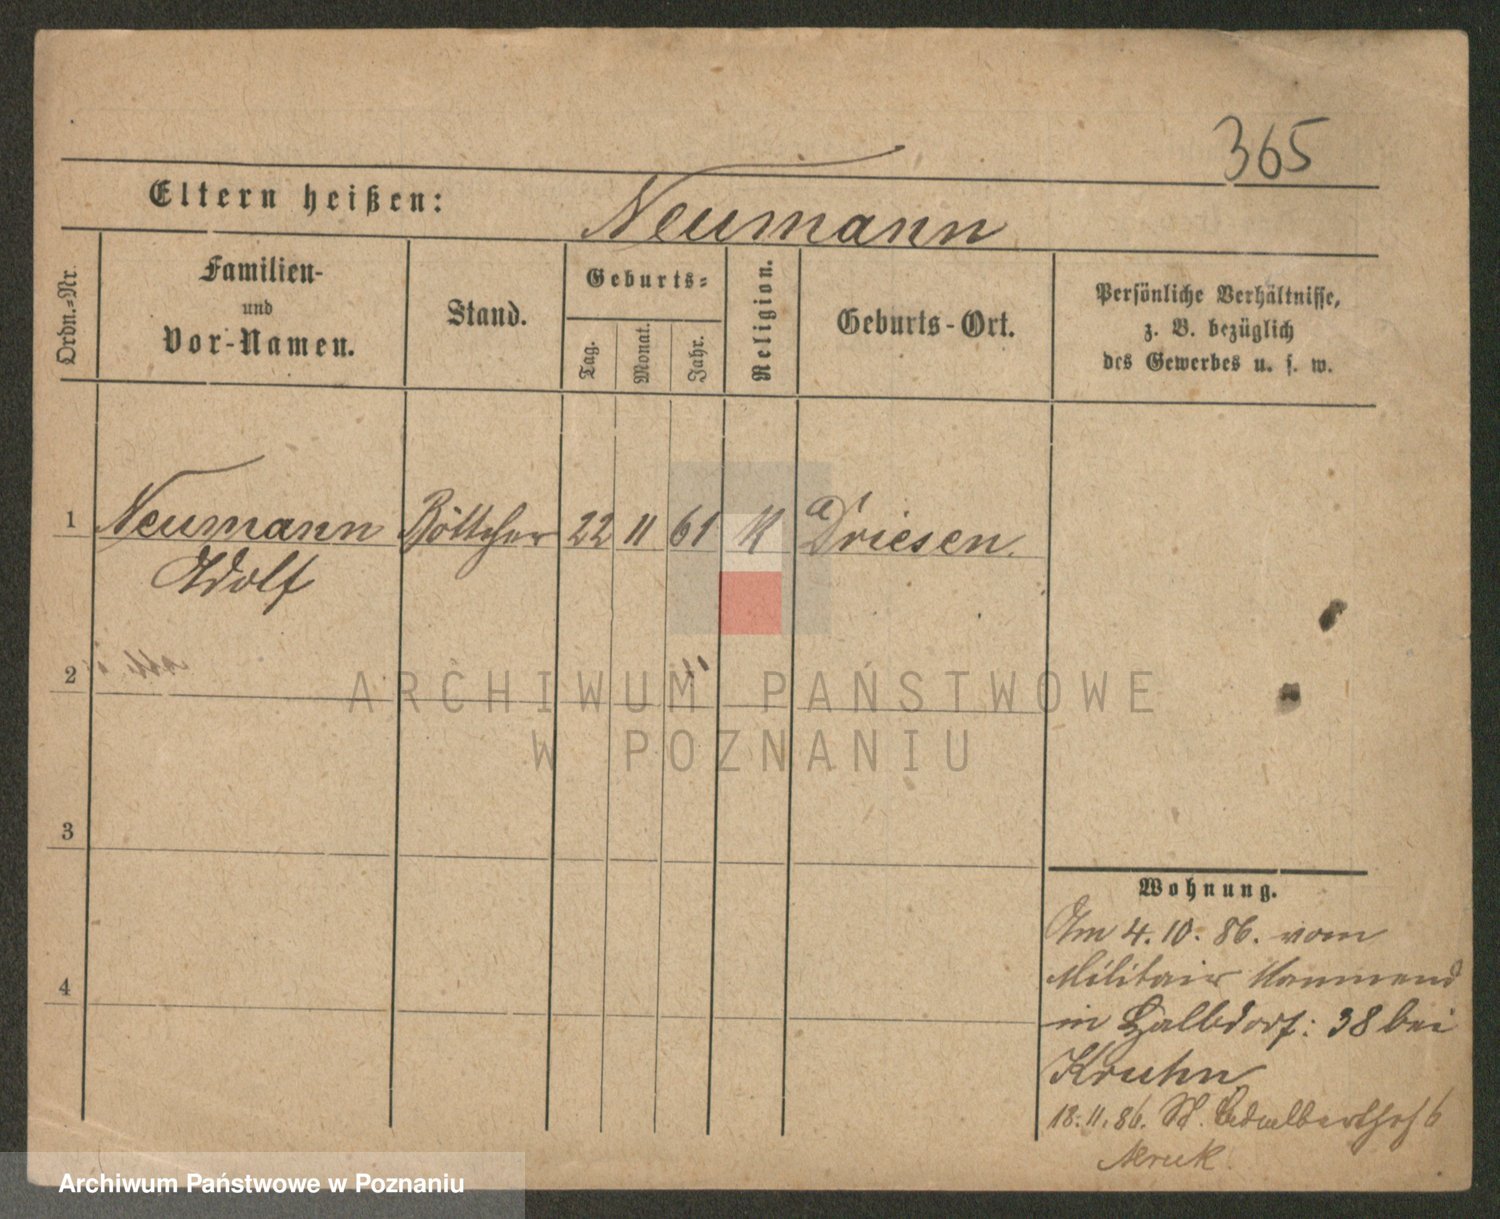 365
Eltern heißen: Neumann
Ordn.-Nr.
Familien-
und
Vor-Namen.
Stand.
Geburts-
Tag.
Monat.
Jahr.
Religion.
Geburts-Ort.
Persönliche Verhältnisse,
z. B. bezüglich
des Gewerbes u. s. w.
1 Neumann Böttcher 22 11 61 K Driesen.
Adolf
2
3
4
ARCHIWUM PAŃSTWOWE
W POZNANIU
Wohnung.
Am 4.10.86. vom
Militair kommend
in Halbdorf: 38 bei
Kruhn
18.11.86. St. Adalberthof 6
Archiwum Państwowe w Poznaniu